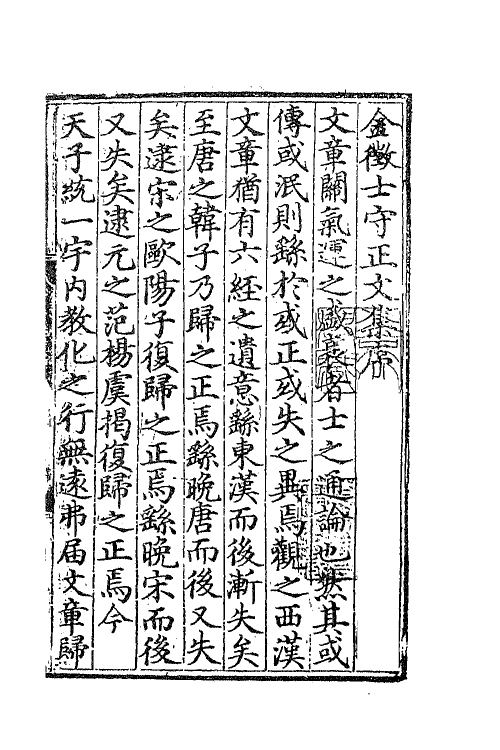 金徵士守正文集序
文章關氣運之盛衰者士之通論也然其或
傳或泯則繇於或正或失之異焉觀之西漢
文章猶有六經之遺意繇東漢而後漸失矣
至唐之韓子乃歸之正焉繇晚唐而後又失
矣逮宋之歐陽子復歸之正焉繇晚宋而後
又失矣逮元之范楊虞揭復歸之正焉今
天子統一宇內教化之行無遠弗届文章歸